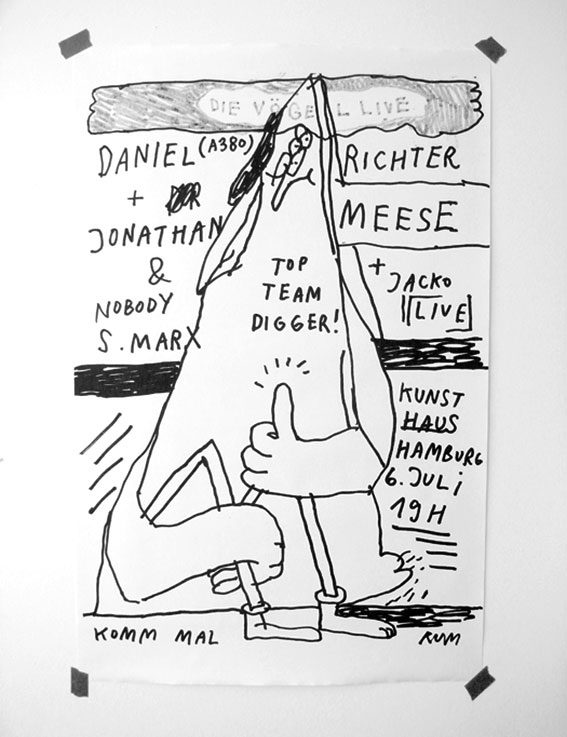 DIE VÖGELL LIVE
DANIEL (A380) RICHTER
+
JONATHAN MEESE
&
NOBODY
S. MARX
+ JACKO
LIVE
TOP
TEAM
DIGGER!
KUNST
HAUS
HAMBURG
6. JULI
19H
KOMM MAL RUM